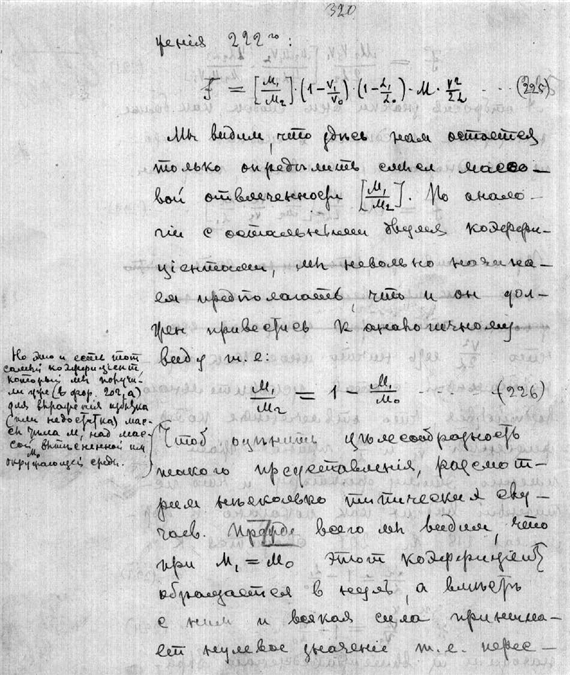 320
ченія 222го:
F = [M₁/M₂]·(1-V₁/V₀)·(1-L₁/L₀)·M·V²/2L ··· (225)
Мы видим, что здесь нам остается
только определить смысл массо-
вой отвлеченности [M₁/M₂]. По анало-
гіи с остальными двумя коэффи-
ціентами, мы невольно начина-
ем предполагать что и он дол-
жен привестись к аналогичному
виду т.е:
M₁/M₂ = 1 - M₁/M₀ ······ (226)
Но это и есть тот
самый коэффиціент
который мы получи-
ли уже (в фор. 202,а)
для выраженія избытка
(или недостатка) мас-
сы тела M₁ над мас-
сой вытесненной им
M₀
окружающей среды.
Чтоб оценить целесообразность
такого представленія, разсмот-
рим несколько типических слу-
чаев. Прежде всего мы видим, что
при M₁ = M₀ этот коэффиціент
обращается в нуль, а вместе
с ним и всякая сила принима-
ет нулевое значеніе т.е. перес-